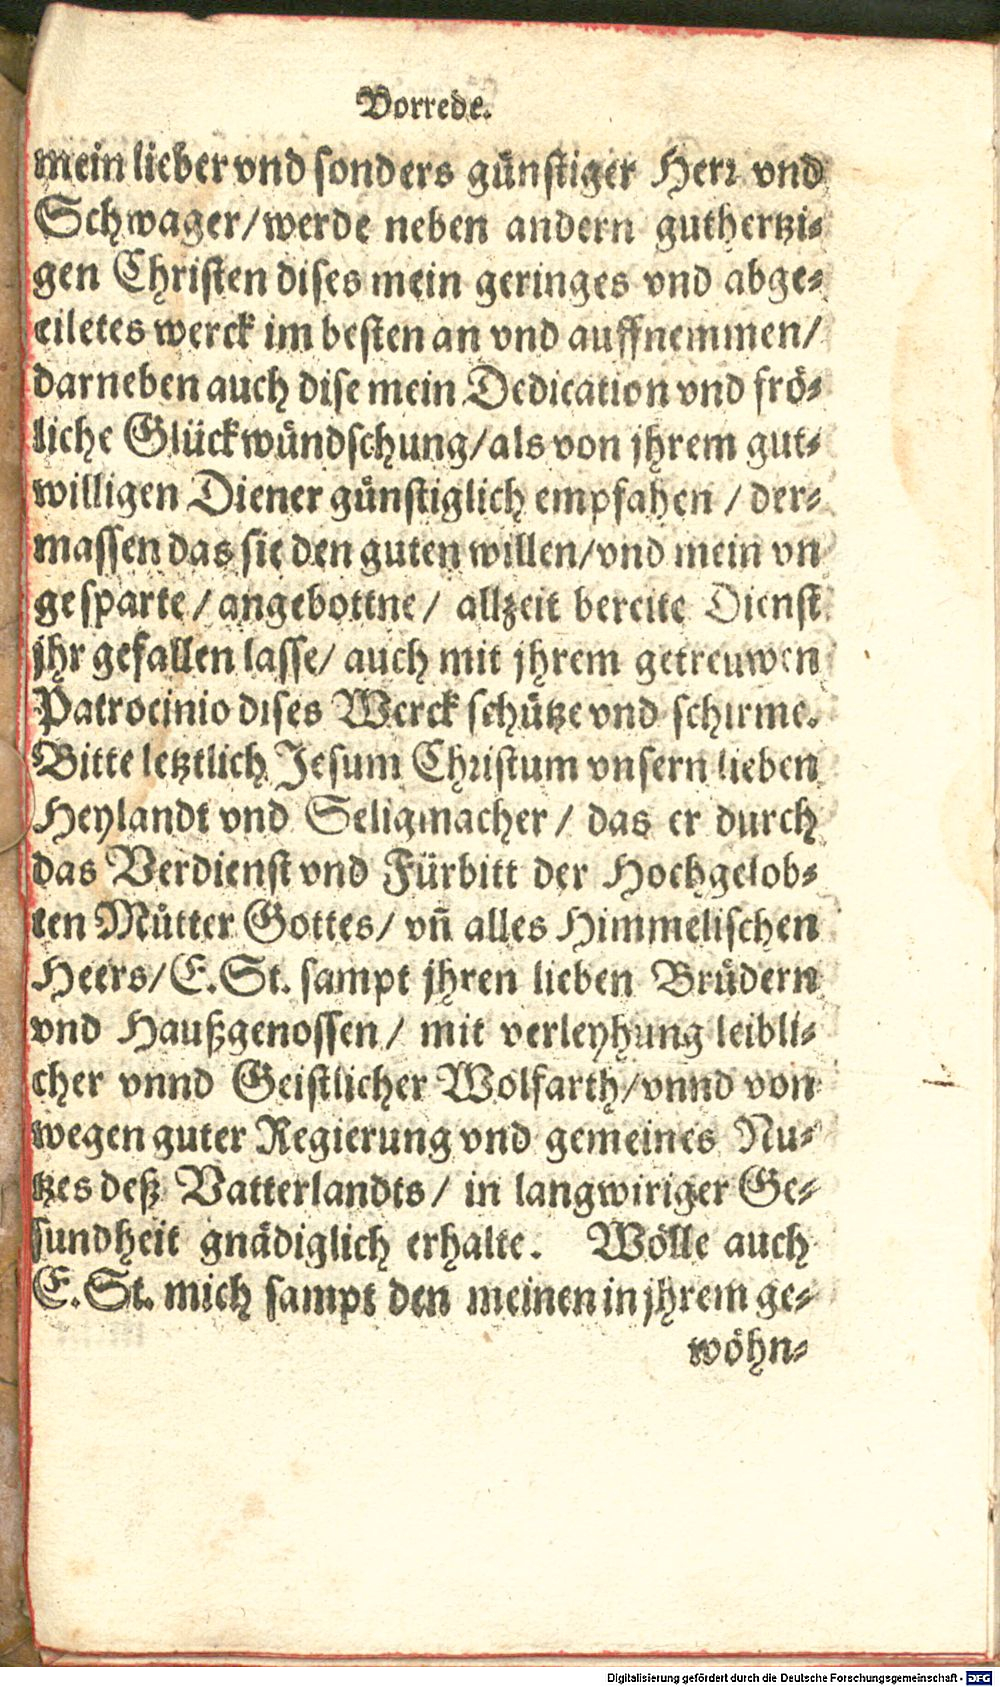 Vorrede.
mein lieber vnd sonders günstiger Herr vnd
Schwager/werde neben andern guthertzi-
gen Christen dises mein geringes vnd abge-
eiletes werck im besten an vnd auffnemmen/
darneben auch dise mein Dedication vnd frö-
liche Glückwündschung/als von jhrem gut-
willigen Diener günstiglich empfahen / der-
massen das sie den guten willen/vnd mein vn
gesparte/ angebottne/ allzeit bereite Dienst
jhr gefallen lasse/ auch mit jhrem getreuwen
Patrocinio dises Werck schütze vnd schirme.
Bitte letztlich Jesum Christum vnsern lieben
Heylandt vnd Seligmacher/ das er durch
das Verdienst vnd Fürbitt der Hochgelob-
ten Mütter Gottes/ vñ alles Himmelischen
Heers/E.St. sampt jhren lieben Brüdern
vnd Haußgenossen/ mit verleyhung leibli-
cher vnnd Geistlicher Wolfarth/vnnd von
wegen guter Regierung vnd gemeines Nu-
tzes deß Vatterlandts/ in langwiriger Ge-
sundheit gnädiglich erhalte. Wölle auch
E.St. mich sampt den meinen in jhrem ge-
wöhn-
Digitalisierung gefördert durch die Deutsche Forschungsgemeinschaft - DFG